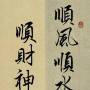 順風順水
順財神